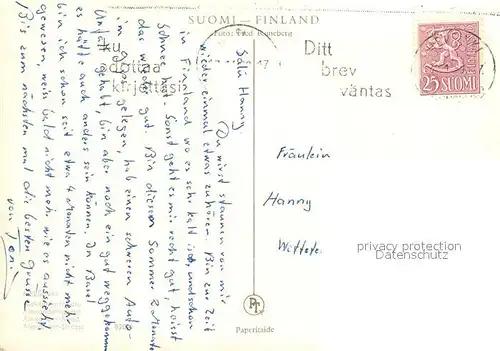 SUOMI — FINLAND
Foto: Fred Runeberg
ku
odottaa
kirjettäsi
17
Ditt
brev
väntas
25 SUOMI
Salü Hanny.
Du wirst staunen von mir
wieder einmal etwas zu hören. Bin zur Zeit
in Finnland wo es sehr kalt ist, und schon
Schnee hat. Sonst geht es mir recht gut, heisst
das wieder gut. Bin diesen Sommer 2 Monate
im gelegen, hab einen schweren Auto-
Unfall gehabt, bin aber noch ein gut weggekommen
es hätte auch anders sein können. In Basel
bin ich schon seit etwa 4 Monaten nicht mehr
gewesen, weiss bald nicht mehr wie es aussieht.
Bis zum nächsten mal die besten Grüsse
von
Fräulein
Hanny
privacy protection
Datenschutz
PT
Paperitaide